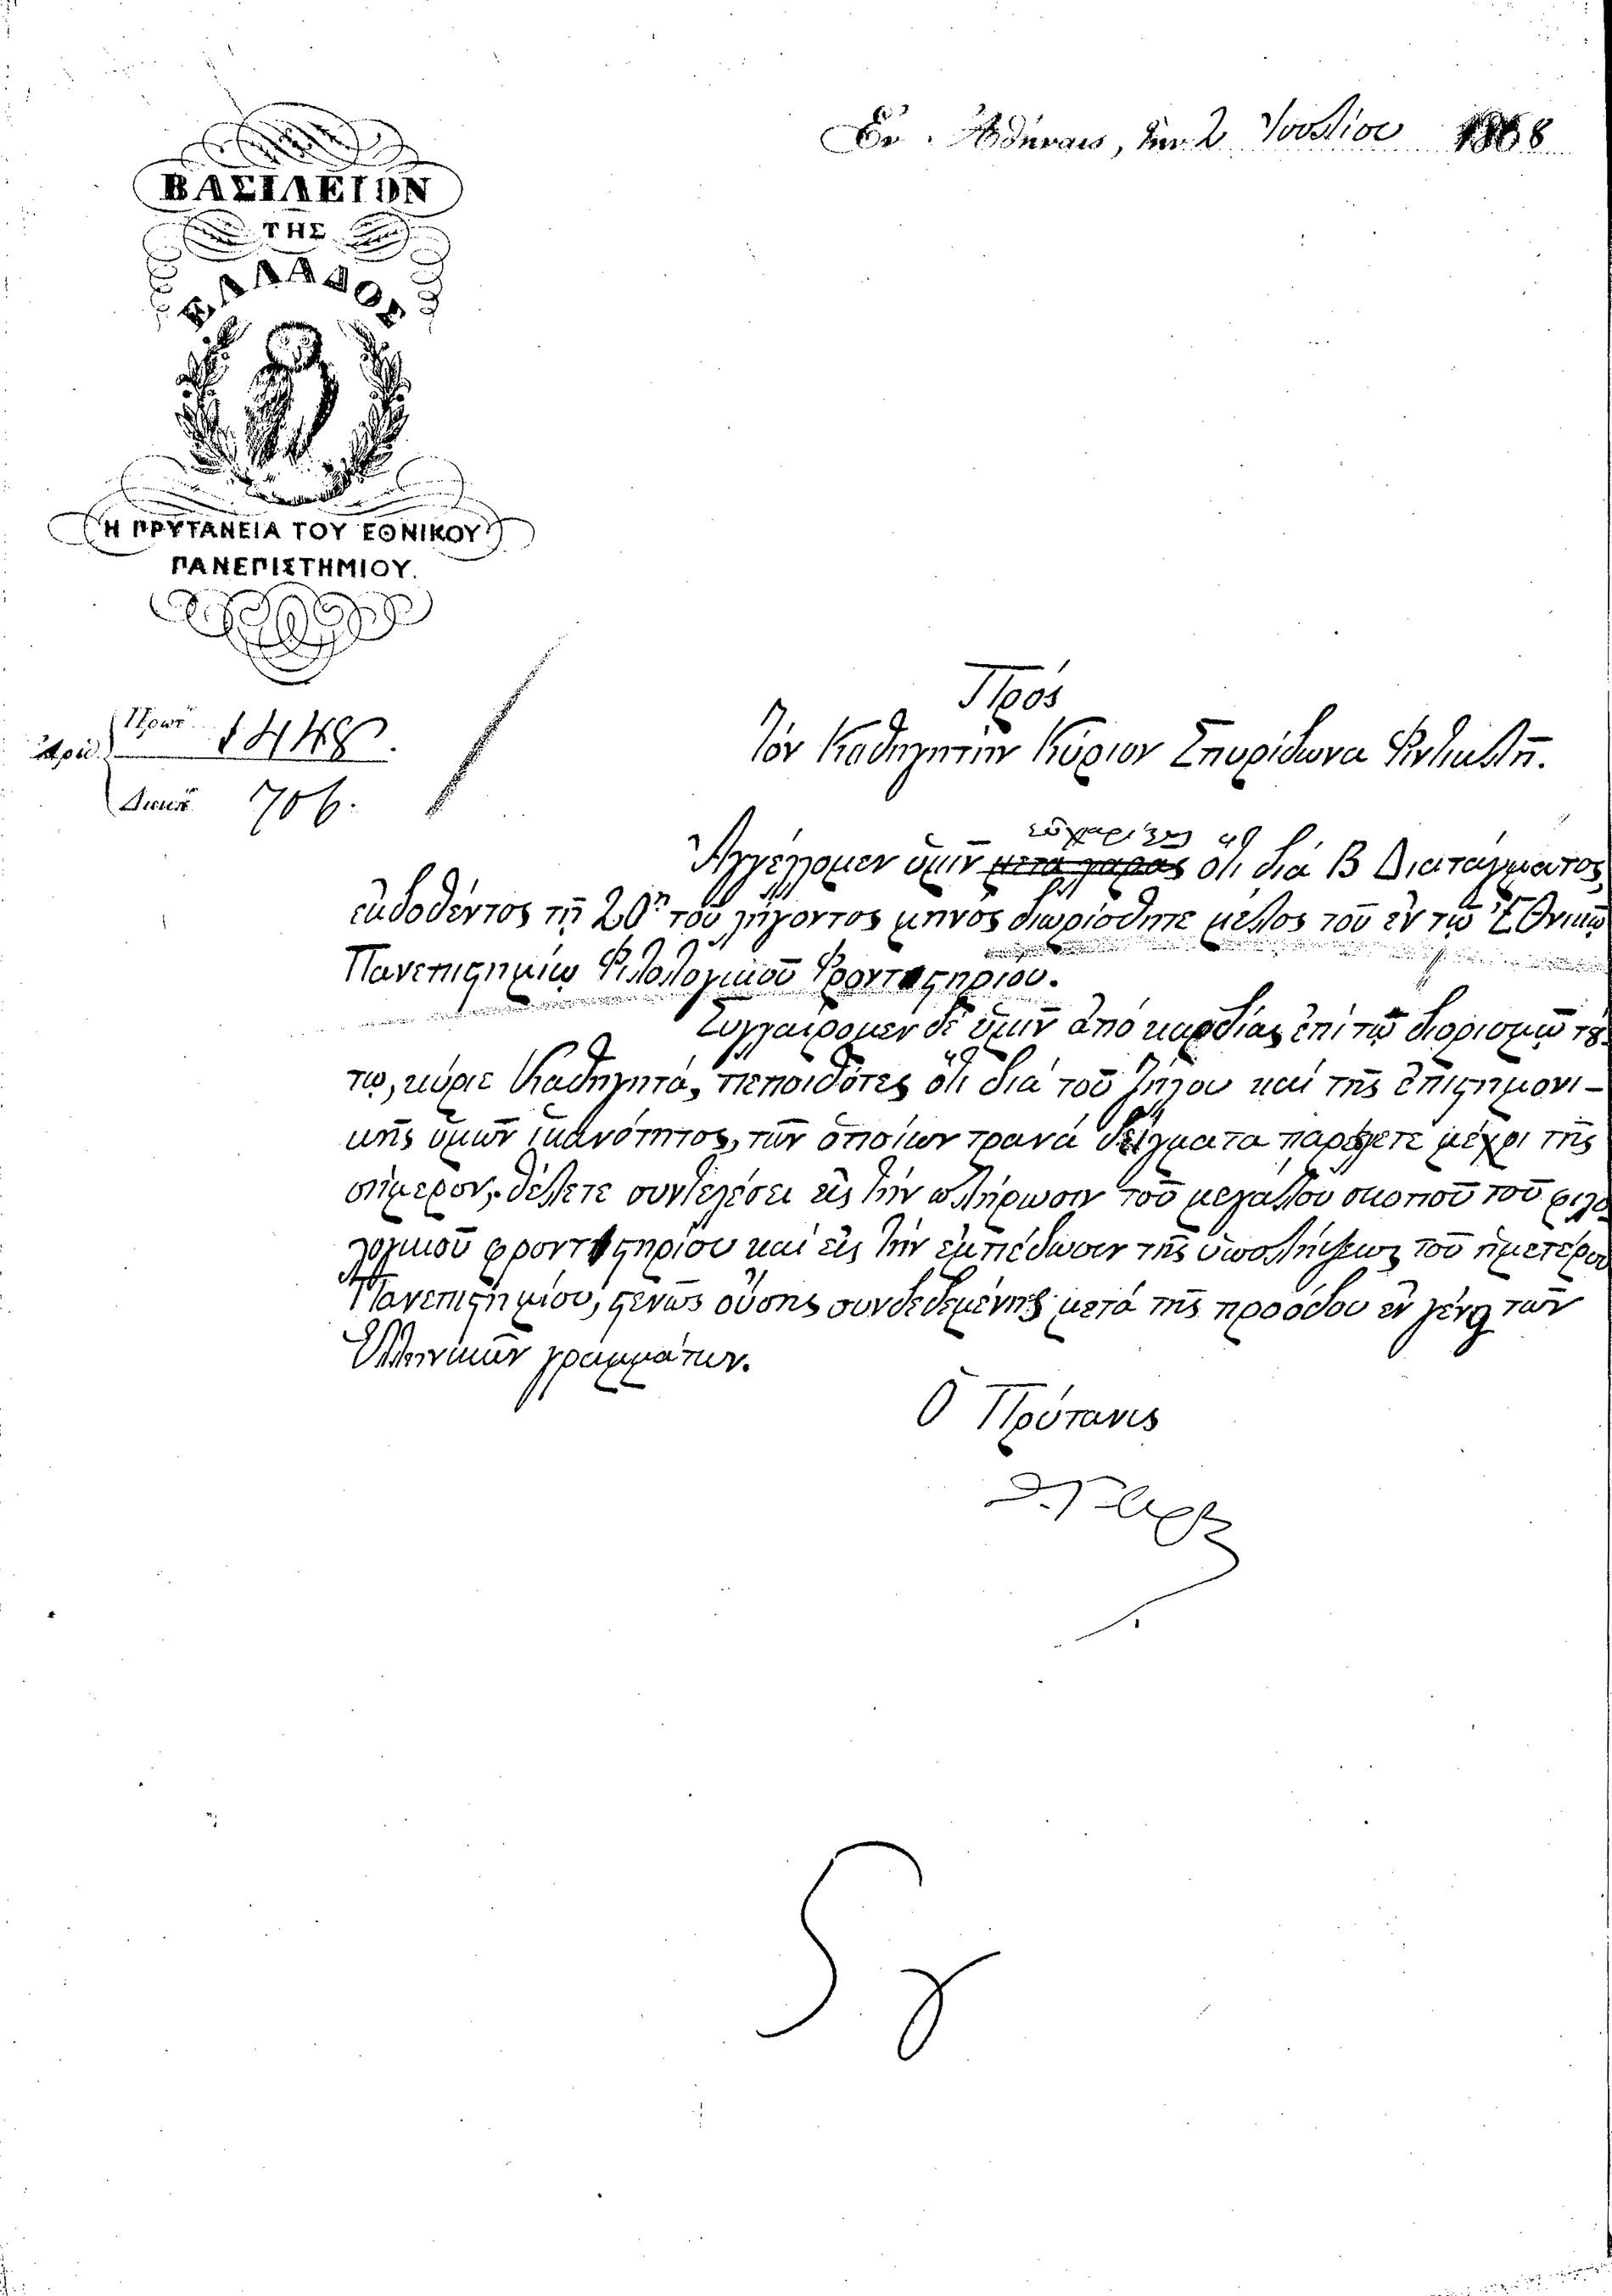 Ἐν Ἀθήναις, τὴν 2 Ἰουλίου 1868
ΒΑΣΙΛΕΙΟΝ
ΤΗΣ
ΕΛΛΑΔΟΣ
Η ΠΡΥΤΑΝΕΙΑ ΤΟΥ ΕΘΝΙΚΟΥ
ΠΑΝΕΠΙΣΤΗΜΙΟΥ.
Πρὸς
Ἀριθ. Πρωτ. 1448.
Διεκπ. 706.
Τὸν Καθηγητὴν Κύριον Σπυρίδωνα
εὐχαρίστως
Ἀγγέλλομεν ὑμῖν μετὰ χαρᾶς ὅτι διὰ Β Διατάγματος,
ἐκδοθέντος τῇ 20ῃ τοῦ λήγοντος μηνὸς διωρίσθητε μέλος τοῦ ἐν τῷ Ἐθνικῷ
Πανεπιστημίῳ Φιλολογικοῦ Φροντιστηρίου.
Συγχαίρομεν δὲ ὑμῖν ἀπὸ καρδίας ἐπὶ τῷ διορισμῷ τού-
τῳ, κύριε Καθηγητά, πεποιθότες ὅτι διὰ τοῦ ζήλου καὶ τῆς ἐπιστημονι-
κῆς ὑμῶν ἱκανότητος, τῶν ὁποίων τρανὰ δείγματα παρέχετε μέχρι τῆς
σήμερον, θέλετε συντελέσει εἰς τὴν πλήρωσιν τοῦ μεγάλου σκοποῦ τοῦ φιλο-
λογικοῦ φροντιστηρίου καὶ εἰς τὴν ἐμπέδωσιν τῆς ὑπολήψεως τοῦ ἡμετέρου
Πανεπιστημίου, στενῶς οὔσης συνδεδεμένης μετὰ τῆς προόδου ἐν γένει τῶν
Ἑλληνικῶν γραμμάτων.
Ὁ Πρύτανις